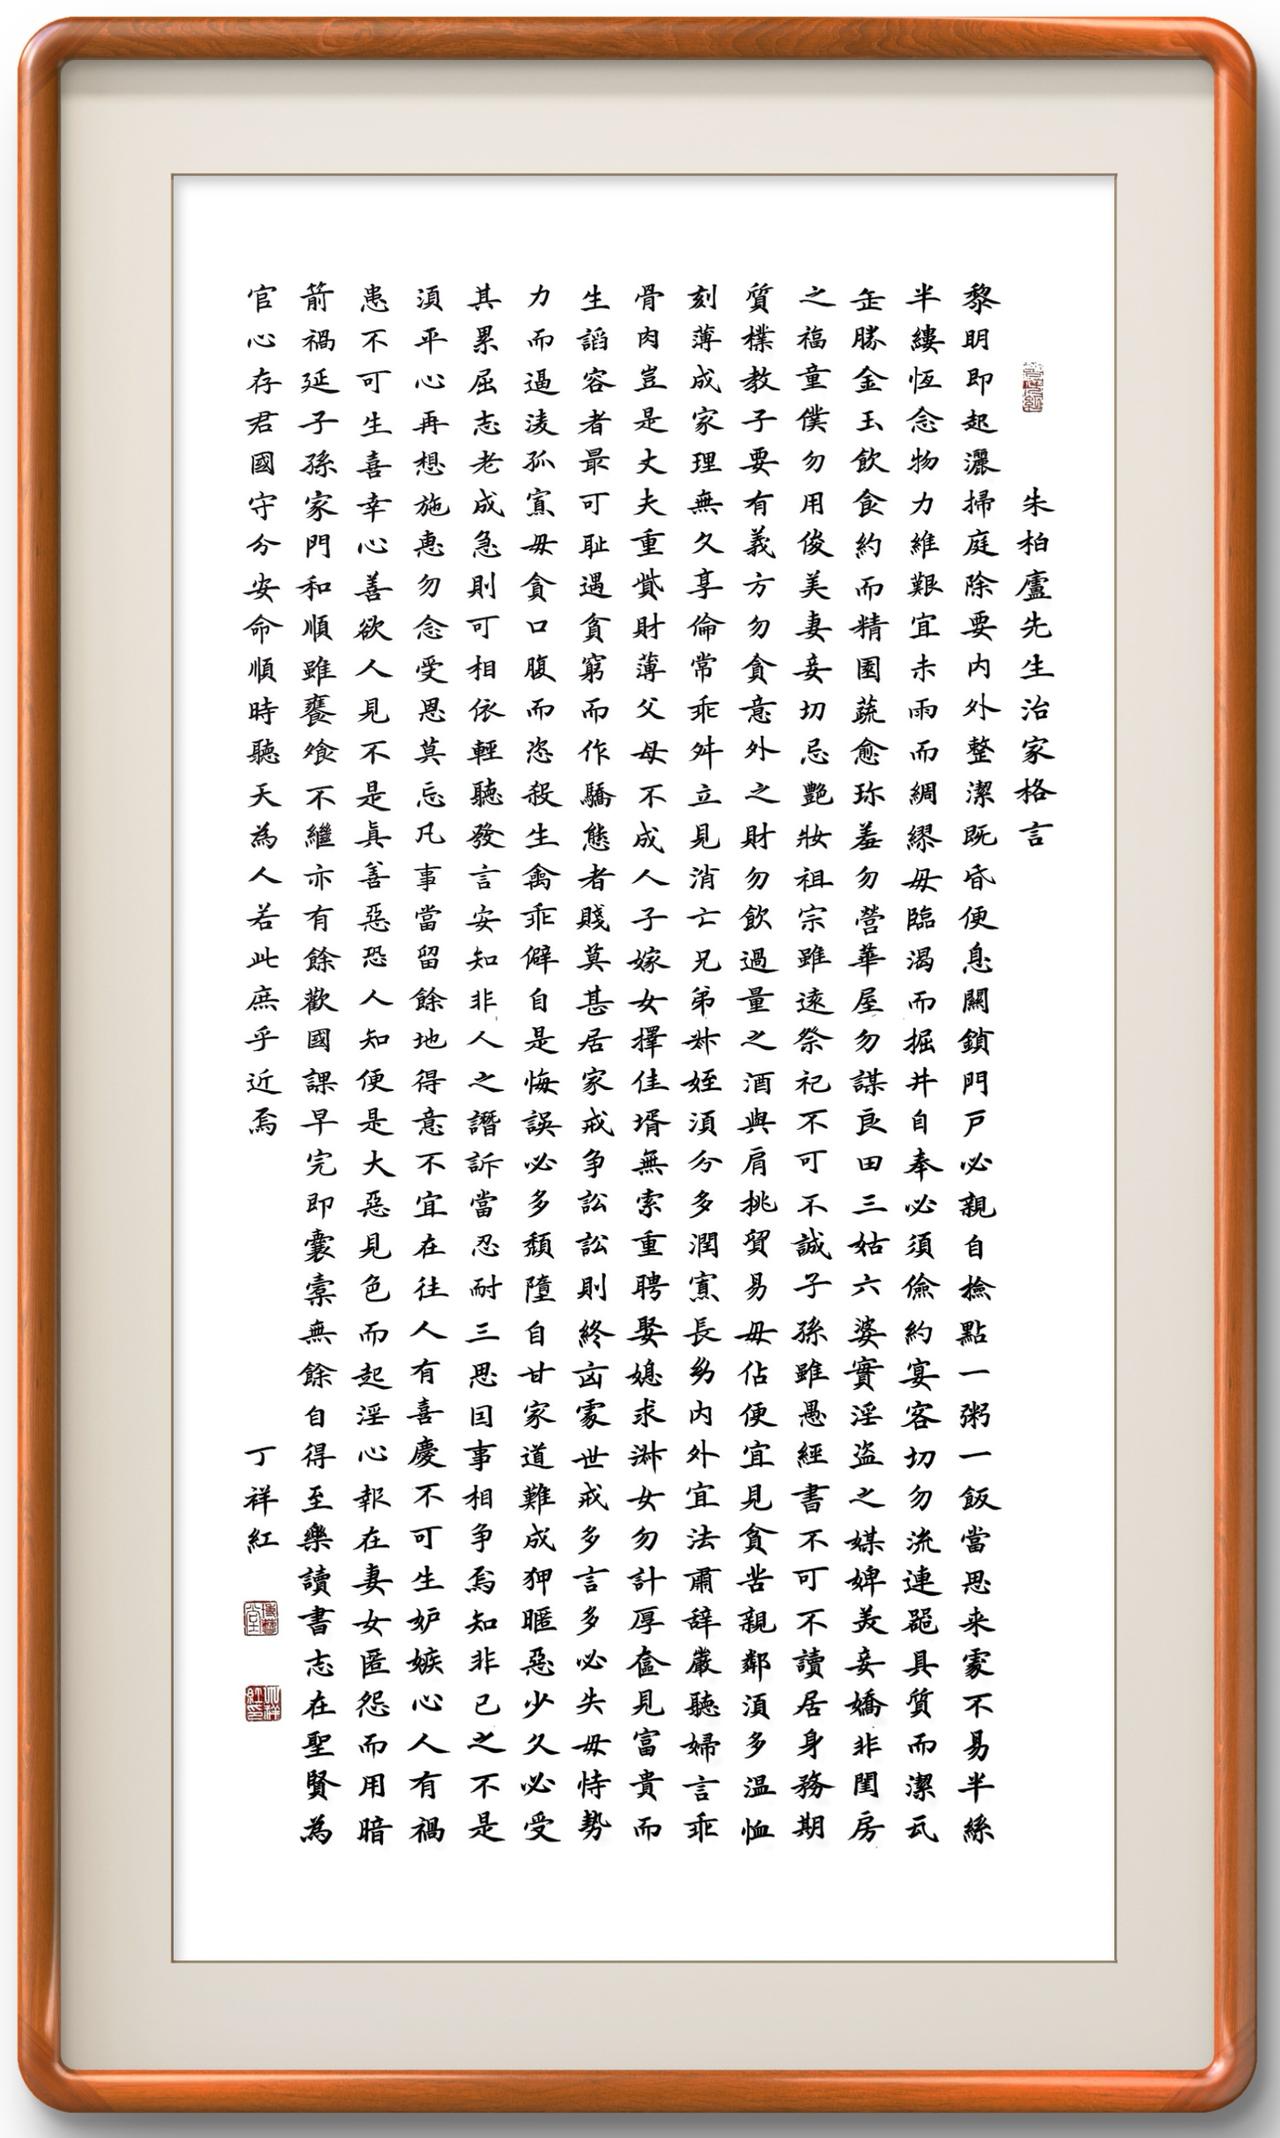 朱柏廬先生治家格言
黎明即起灑掃庭除要内外整潔既昏便息關鎖門戶必親自撿點一粥一飯當思来處不易半絲
半縷恆念物力維艱宜未雨而綢繆毋臨渴而掘井自奉必須儉約宴客切勿流連器具質而潔瓦
缶勝金玉飲食約而精園蔬愈珍羞勿營華屋勿謀良田三姑六婆實淫盗之媒婢美妾嬌非閨房
之福童僕勿用俊美妻妾切忌艷妝祖宗雖遠祭祀不可不誠子孫雖愚經書不可不讀居身務期
質樸教子要有義方勿貪意外之財勿飲過量之酒與肩挑貿易毋佔便宜見貧苦親鄰須多温恤
刻薄成家理無久享倫常乖舛立見消亡兄弟叔姪須分多潤寡長幼内外宜法肅辞嚴聽婦言乖
骨肉豈是丈夫重貲財薄父母不成人子嫁女擇佳壻無索重聘娶媳求淑女勿計厚奩見富貴而
生諂容者最可恥遇貧窮而作驕態者賤莫甚居家戒争訟訟則終凶處世戒多言言多必失毋恃勢
力而逼淩孤寡毋貪口腹而恣殺生禽乖僻自是悔誤必多頹墮自甘家道難成狎暱惡少久必受
其累屈志老成急則可相依輕聽發言安知非人之譖訴當忍耐三思因事相争焉知非己之不是
須平心再想施惠勿念受恩莫忘凡事當留餘地得意不宜在往人有喜慶不可生妒嫉心人有禍
患不可生喜幸心善欲人見不是真善惡恐人知便是大惡見色而起淫心報在妻女匿怨而用暗
箭禍延子孫家門和順雖饔飧不繼亦有餘歡國課早完即囊橐無餘自得至樂讀書志在聖賢為
官心存君國守分安命順時聽天為人若此庶乎近焉
丁祥紅